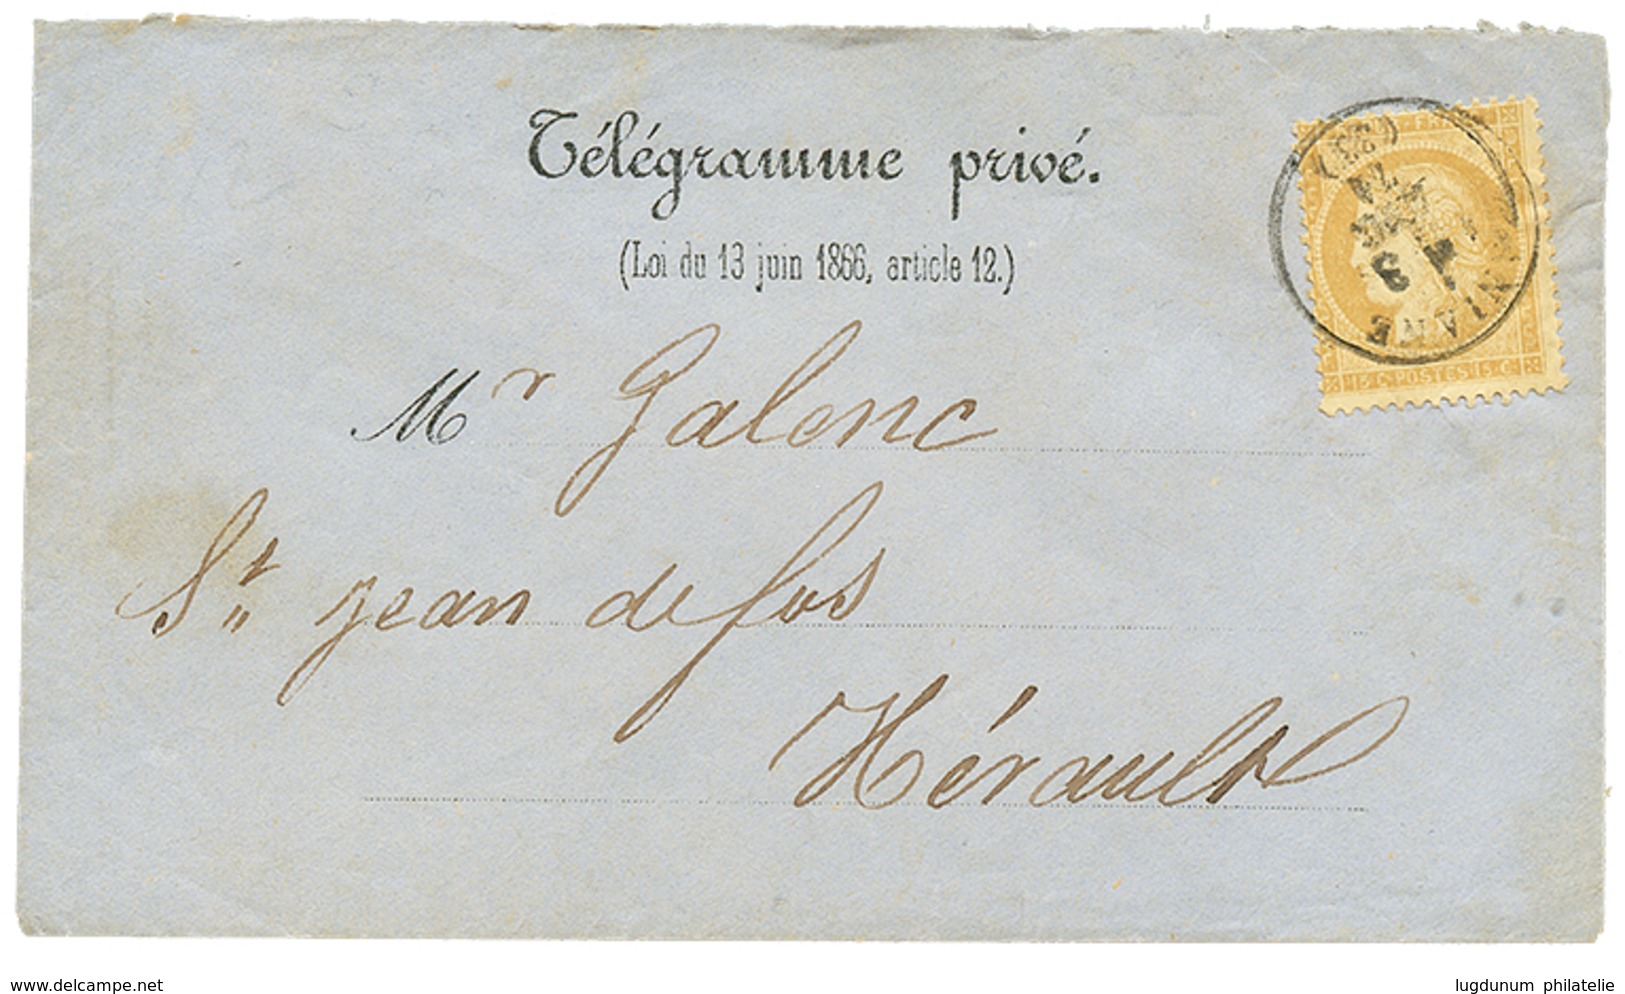 Télégramme privé.
(Loi du 13 juin 1866, article 12.)
Mr Galenc
St. jean de fos
Hérault
ANIANE
(33)
15 C. POSTES 15 C.
www.delcampe.net
lugdunum philatelie